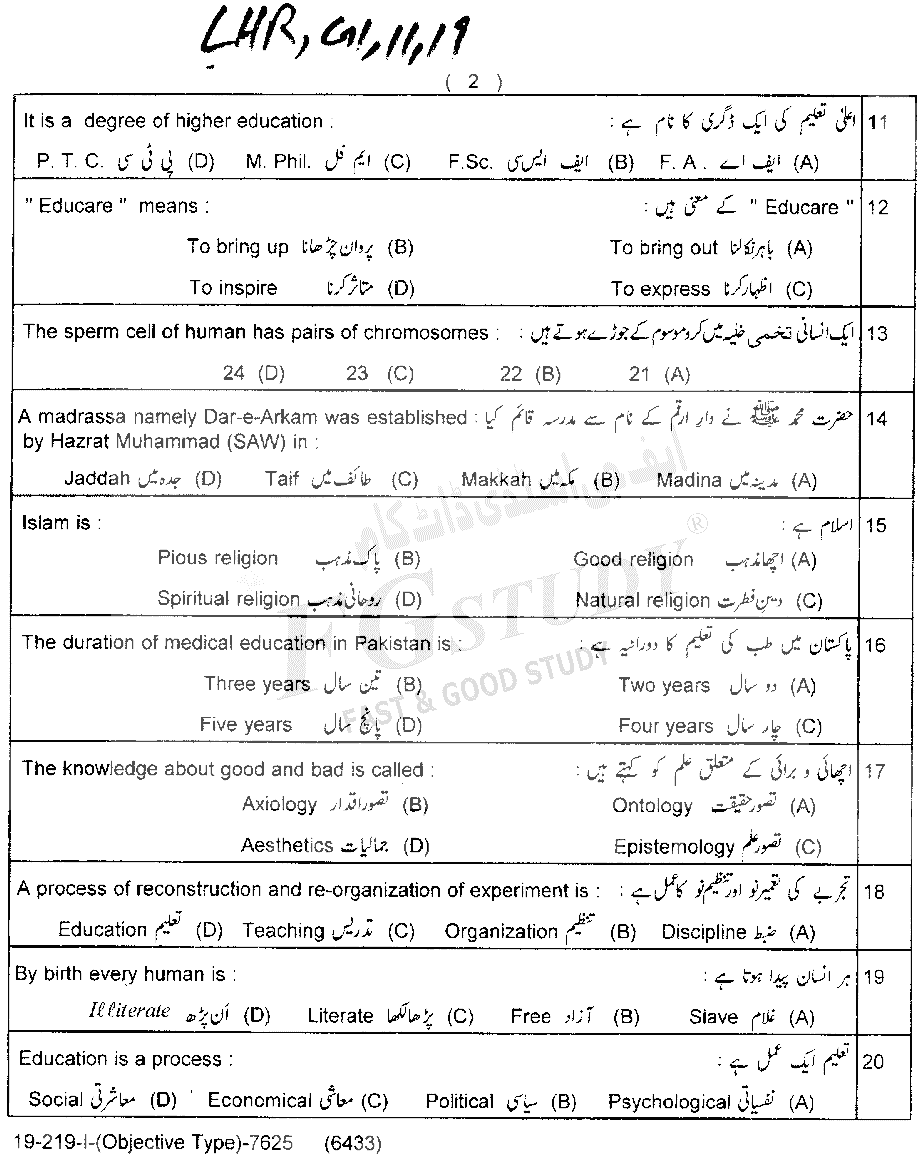 LHR, G1, 11, 19
( 2 )
It is a degree of higher education : اعلیٰ تعلیم کی ایک ڈگری کا نام ہے : 11
P. T. C. پی ٹی سی (D) M. Phil. ایم فل (C) F.Sc. ایف ایس سی (B) F. A . ایف اے (A)
" Educare " means : " Educare " کے معنی ہیں : 12
To bring up پروان چڑھانا (B) To bring out باہر نکالنا (A)
To inspire متاثر کرنا (D) To express اظہار کرنا (C)
The sperm cell of human has pairs of chromosomes : ایک انسانی تخمی خلیہ میں کروموسوم کے جوڑے ہوتے ہیں : 13
24 (D) 23 (C) 22 (B) 21 (A)
A madrassa namely Dar-e-Arkam was established : حضرت محمد ﷺ نے دار ارقم کے نام سے مدرسہ قائم کیا 14
by Hazrat Muhammad (SAW) in :
Jaddah جدہ میں (D) Taif طائف میں (C) Makkah مکہ میں (B) Madina مدینہ میں (A)
ایف جی اسٹڈی ڈاٹ کام
Islam is : اسلام ہے : 15
Pious religion پاک مذہب (B) Good religion اچھا مذہب (A)
Spiritual religion روحانی مذہب (D) Natural religion دین فطرت (C)
FG STUDY ®
FAST & GOOD STUDY
The duration of medical education in Pakistan is : پاکستان میں طب کی تعلیم کا دورانیہ ہے : 16
Three years تین سال (B) Two years دو سال (A)
Five years پانچ سال (D) Four years چار سال (C)
The knowledge about good and bad is called : اچھائی و برائی کے متعلق علم کو کہتے ہیں : 17
Axiology تصور اقدار (B) Ontology تصور حقیقت (A)
Aesthetics جمالیات (D) Epistemology تصور علم (C)
A process of reconstruction and re-organization of experiment is : تجربے کی تعمیر نو اور تنظیم نو کا عمل ہے : 18
Education تعلیم (D) Teaching تدریس (C) Organization تنظیم (B) Discipline ضبط (A)
By birth every human is : ہر انسان پیدا ہوتا ہے : 19
Illiterate اَن پڑھ (D) Literate پڑھا لکھا (C) Free آزاد (B) Slave غلام (A)
Education is a process : تعلیم ایک عمل ہے : 20
Social معاشرتی (D) Economical معاشی (C) Political سیاسی (B) Psychological نفسیاتی (A)
19-219-I-(Objective Type)-7625 (6433)